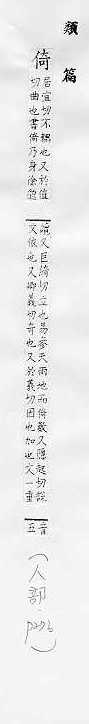 類
篇
倚
居宜切不耦也又於值
切曲也書倚乃身徐邈
讀又巨倚切立也易參天兩地而倚數又隱起切說
文依也又卿義切奇也又於義切因也加也文一重
音
五
(人部.